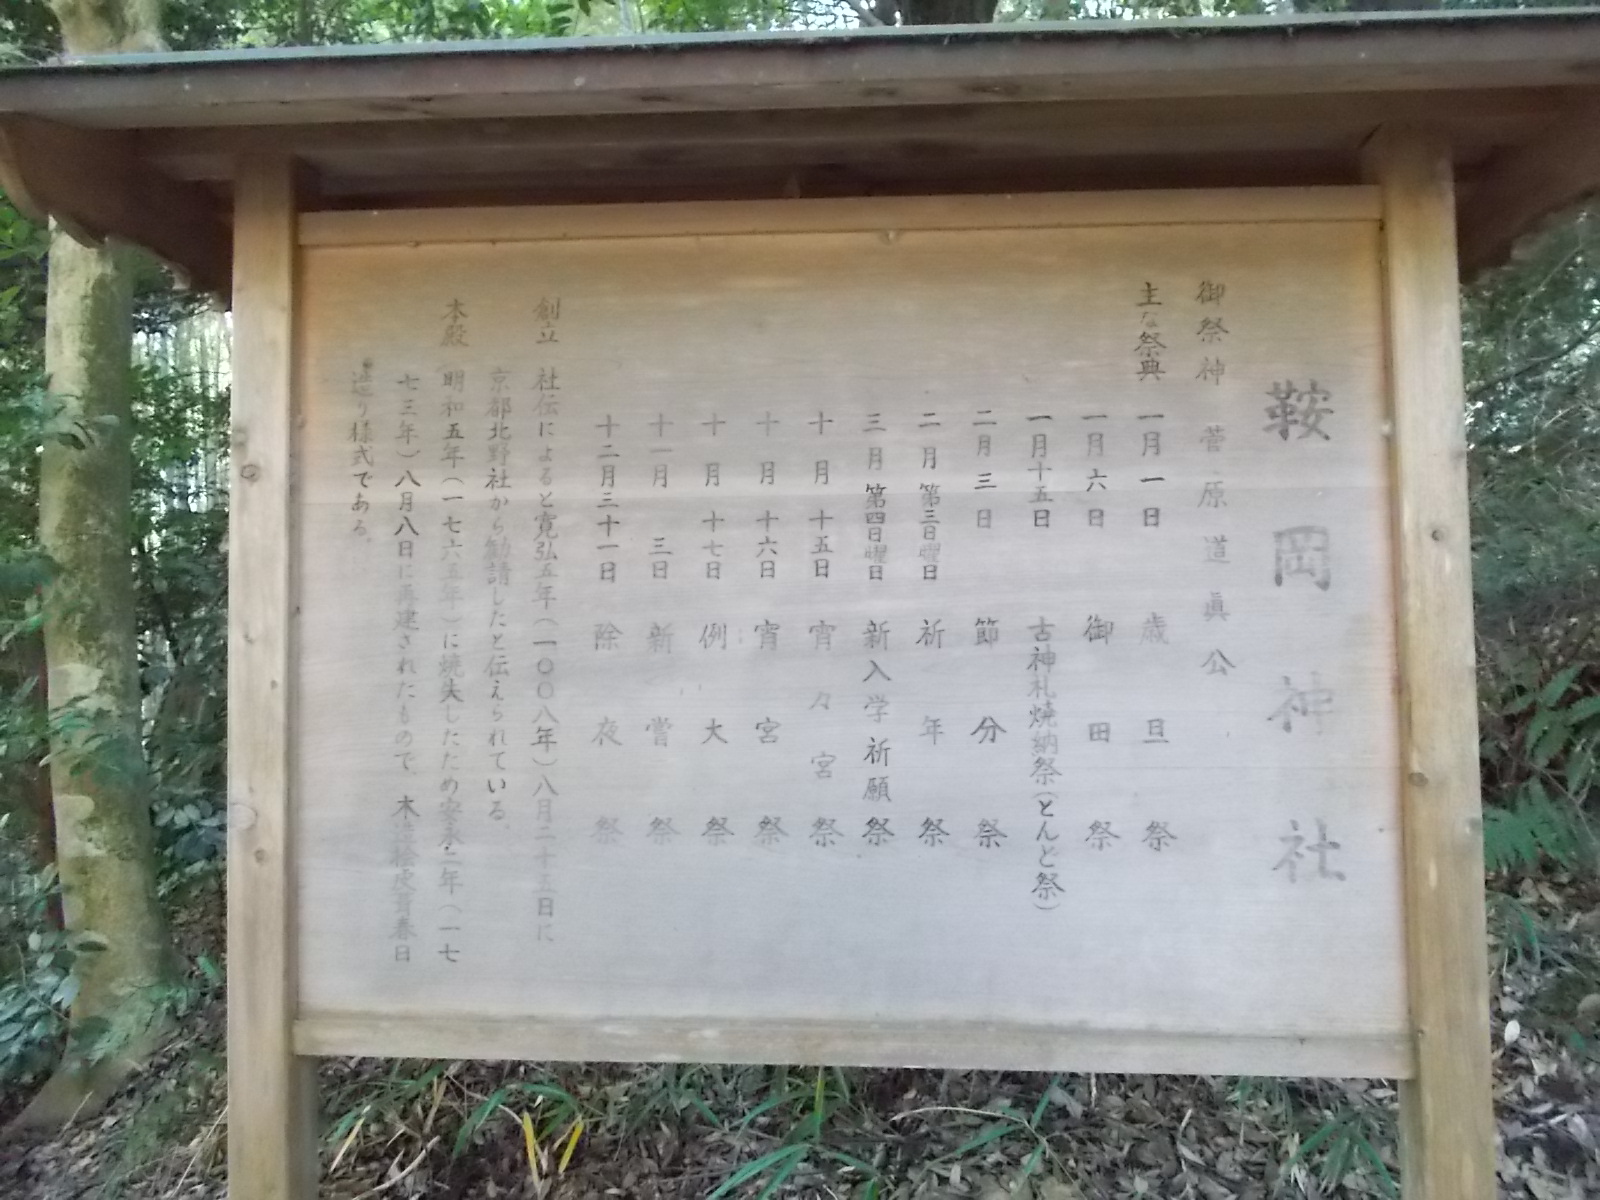 鞍岡神社
御祭神 菅原道眞公
主な祭典 一月一日 歳旦祭
一月六日 御田祭
一月十五日 古神札焼納祭(とんど祭)
二月三日 節分祭
二月第三日曜日 祈年祭
三月第四日曜日 新入学祈願祭
十月十五日 宵々宮祭
十月十六日 宵宮祭
十月十七日 例大祭
十一月三日 新嘗祭
十二月三十一日 除夜祭
創立 社伝によると寛弘五年(一〇〇八年)八月二十三日に
京都北野社から勧請したと伝えられている
本殿 明和五年(一七六五年)に焼失したため安永二年(一七
七三年)八月八日に再建されたもので、木造桧皮葺春日
造り様式である。